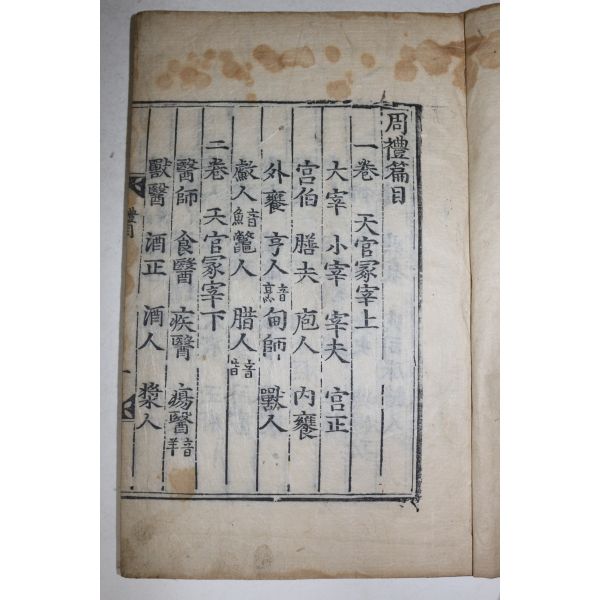 周禮篇目
一卷 天官冢宰上
大宰 小宰 宰夫 宮正
宮伯 膳夫 庖人 內饔
外饔 亨人音烹 甸師 獸人
䱷人音魚 鼈人 腊人音昔
二卷 天官冢宰下
醫師 食醫 疾醫 瘍醫音羊
獸醫 酒正 酒人 漿人
禮目
一